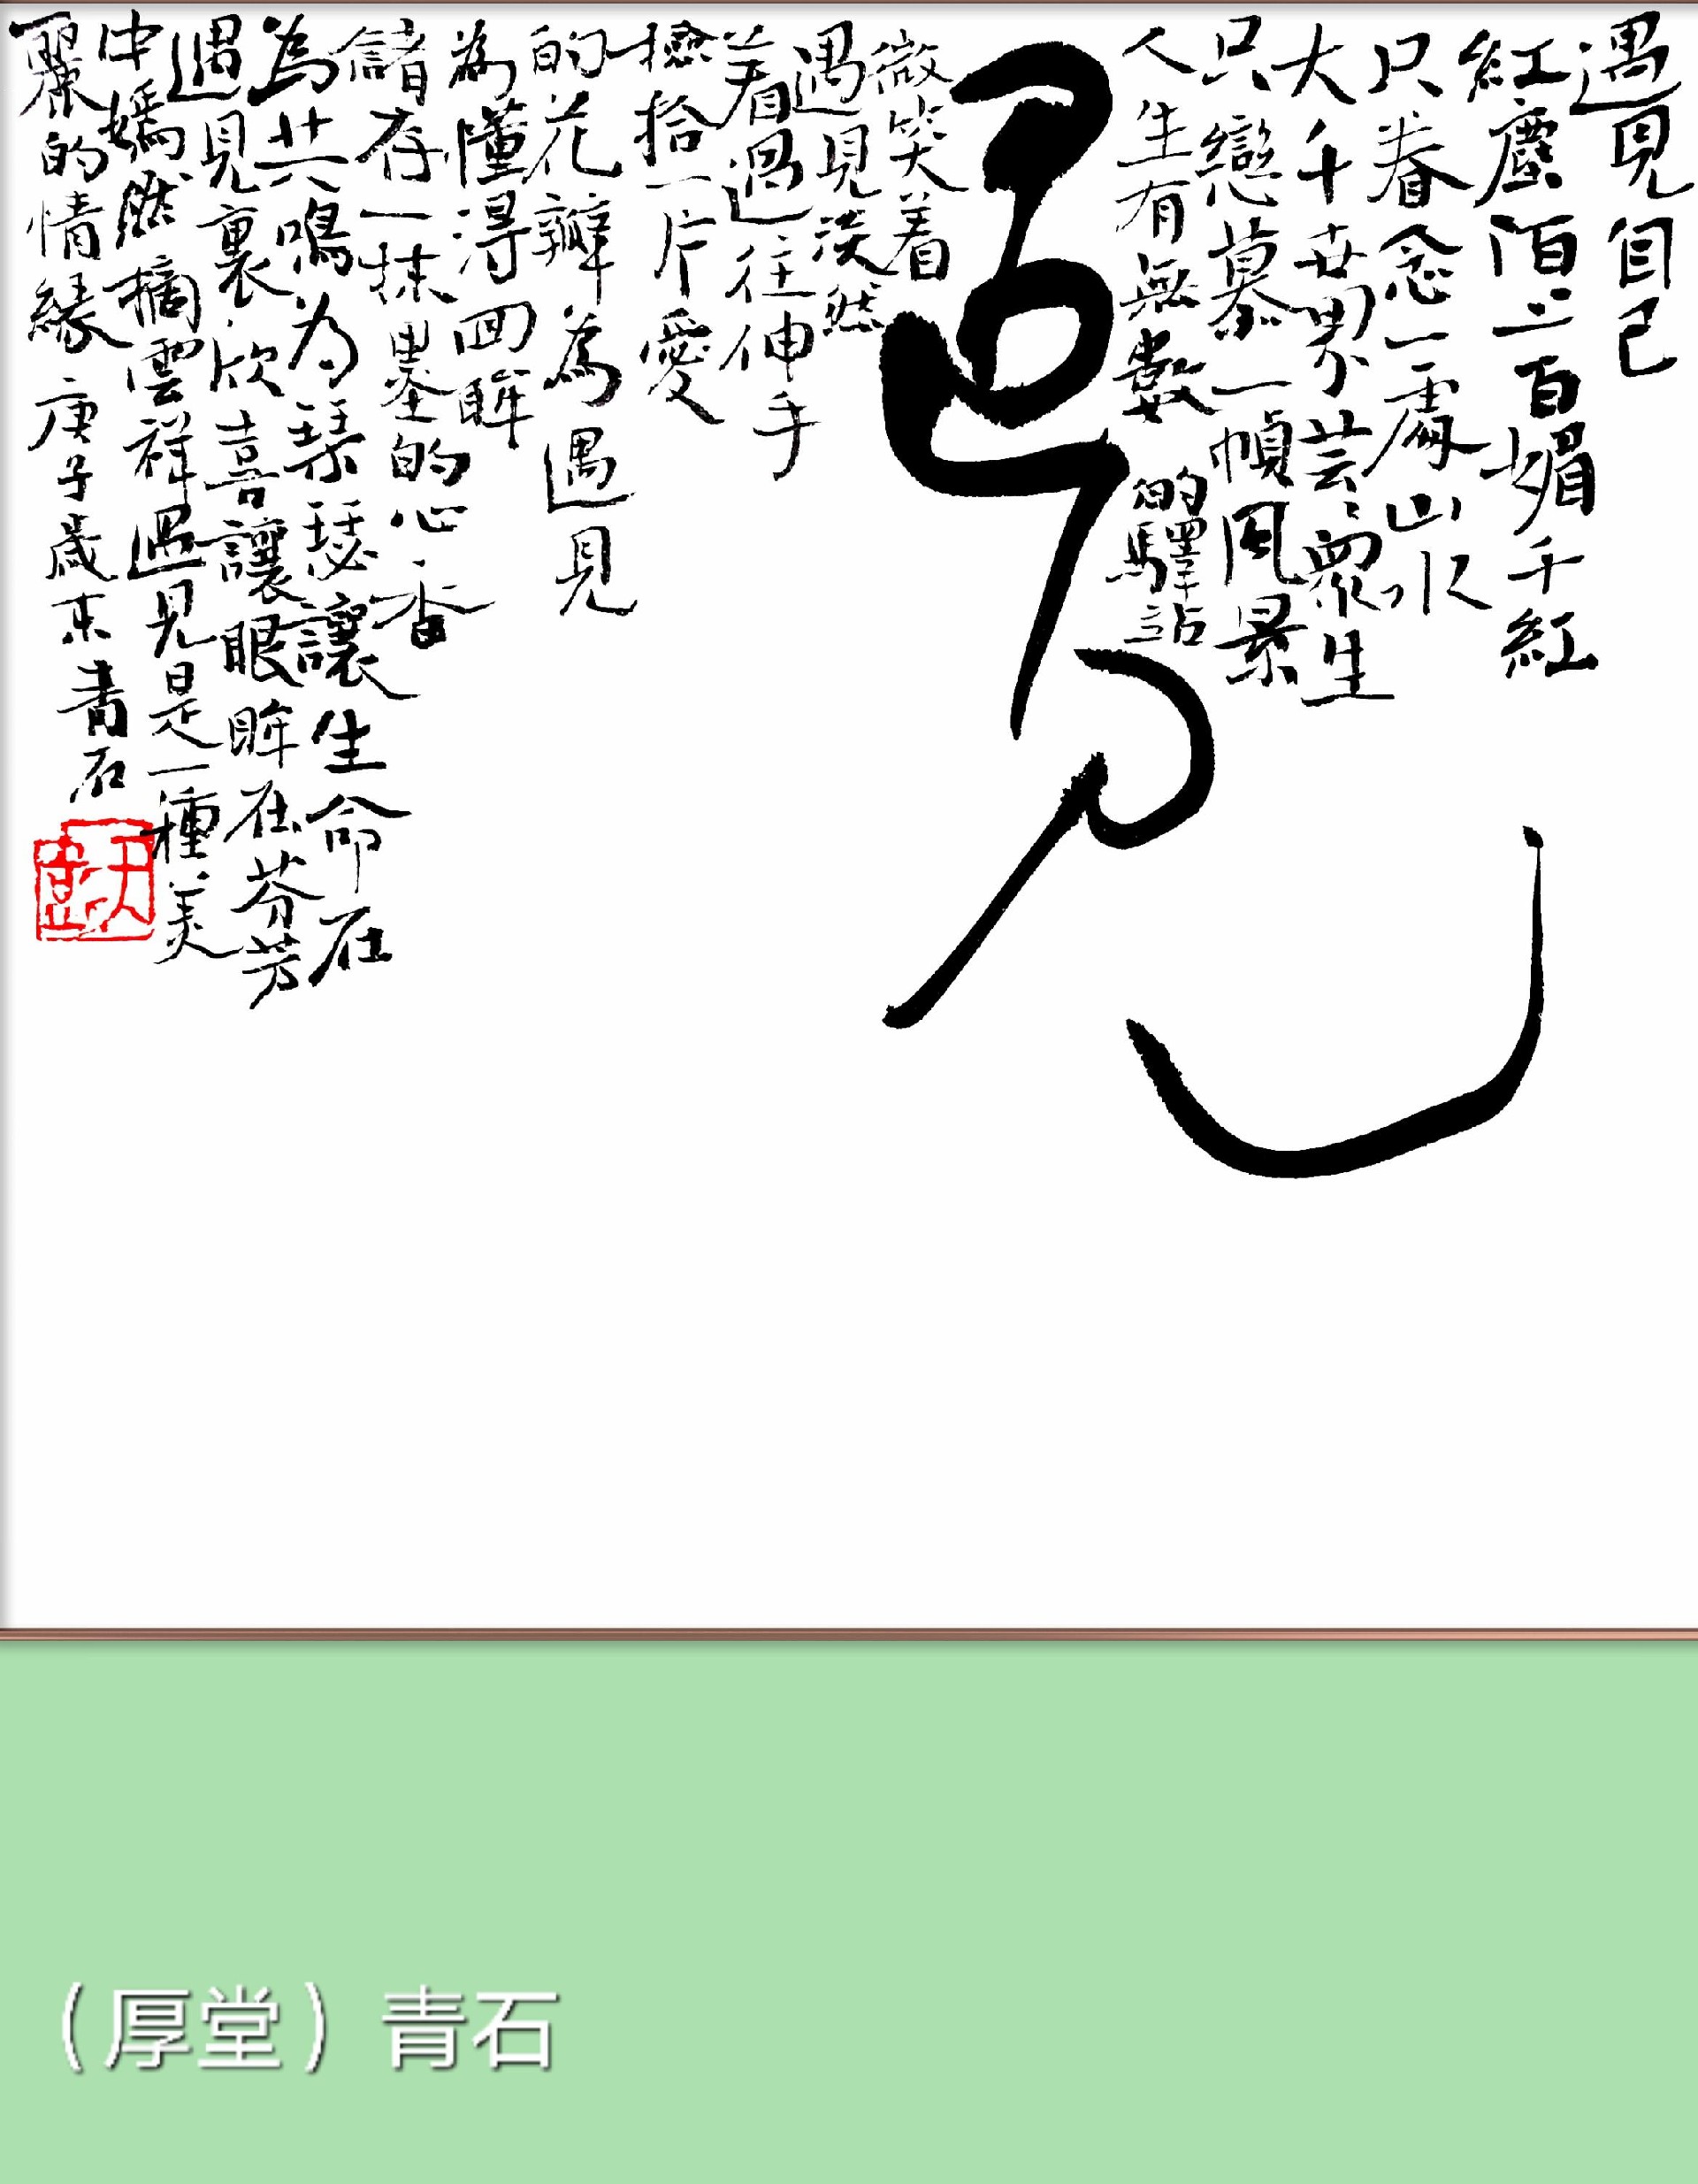 遇見自己
紅塵陌上百媚千紅
只眷念一處山水
大千世界芸芸衆生
只戀慕一幀風景
人生有無數的驛站
遇見
微笑着
遇見淡然
着過往伸手
撿拾一片愛
的花瓣為遇見
為懂得回眸
儲存一抹墨的心香
為共鳴為琴瑟讓生命在
遇見裏欣喜讓眼眸在芬芳
中嫣然摘雲祥遇見是一種美
麗的情緣庚子歲末青石
（厚堂）青石